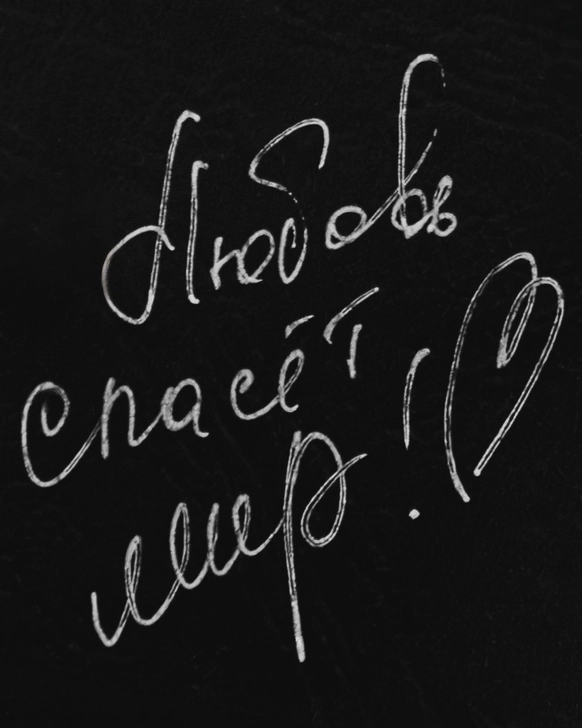 Любовь
спасёт
мир!